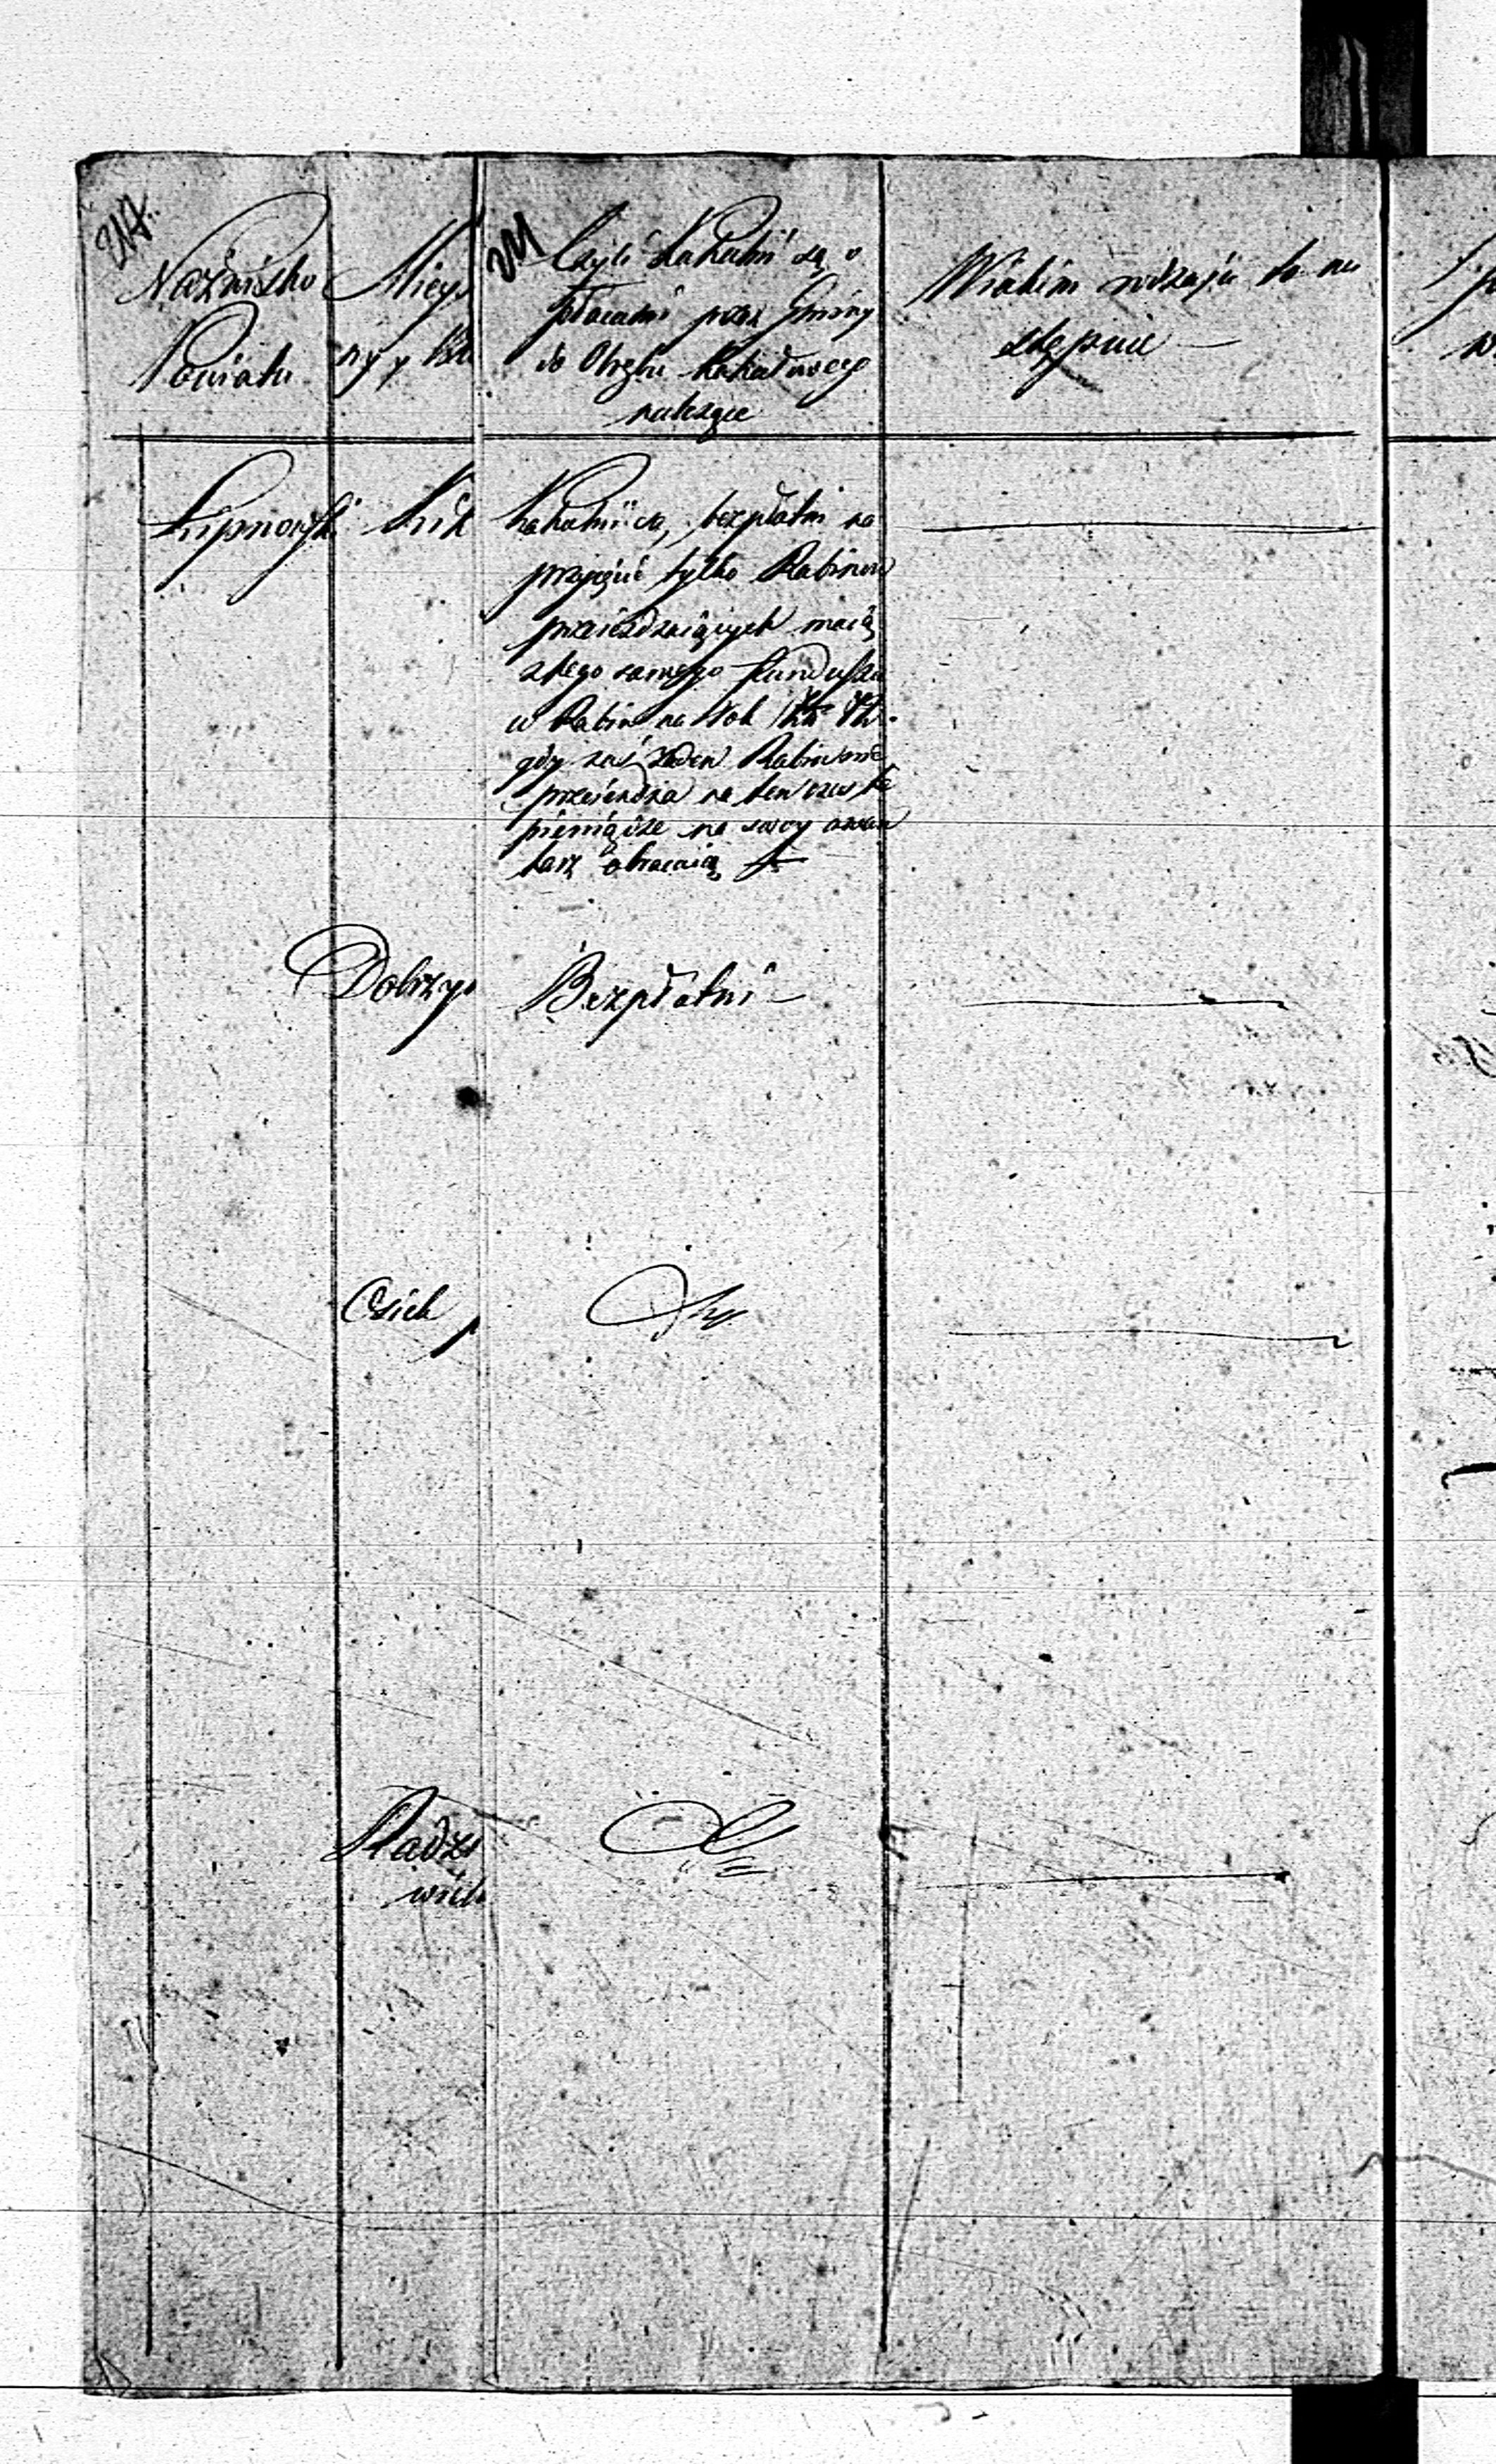 217.
Nazwisko
Powiatu
Mieys
211
Czyli Kahalni są o
płacani przez Gminy
do Okręgu Kahalnego
należące
Wiakim rodzaju to na
stępuie —
Lipnowski
Kik
Kahalni są bezpłatni na
przyięcie tylko Rabinow
przeieżdzaiących maią
z tego samego funduszu
gdy zaś żaden Rabin nie
przeieżdża na ten czas te
pieniądze na swoy cmen
tarz obracaią
Dobrzy
Bezpłatni —
Osiek
Radzi